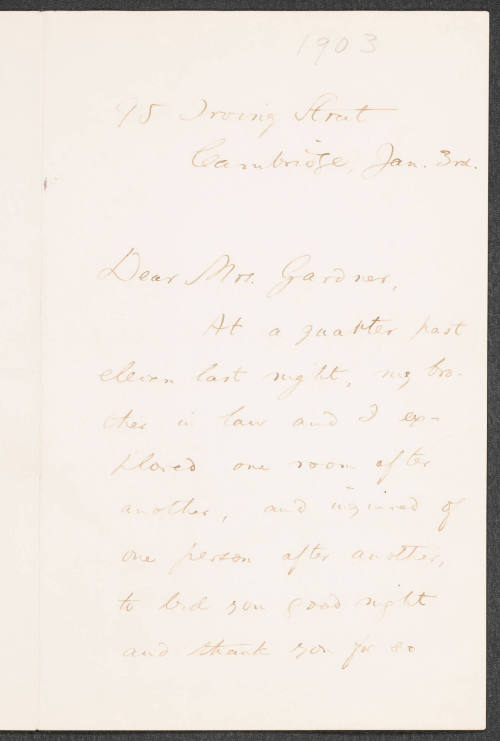 1903
95 Irving Street
Cambridge, Jan. 3rd.
Dear Mrs. Gardner,
At a quarter past
eleven last night, my bro-
ther in law and I ex-
plored one room after
another, and inquired of
one person after another,
to bid you good night
and thank you for so